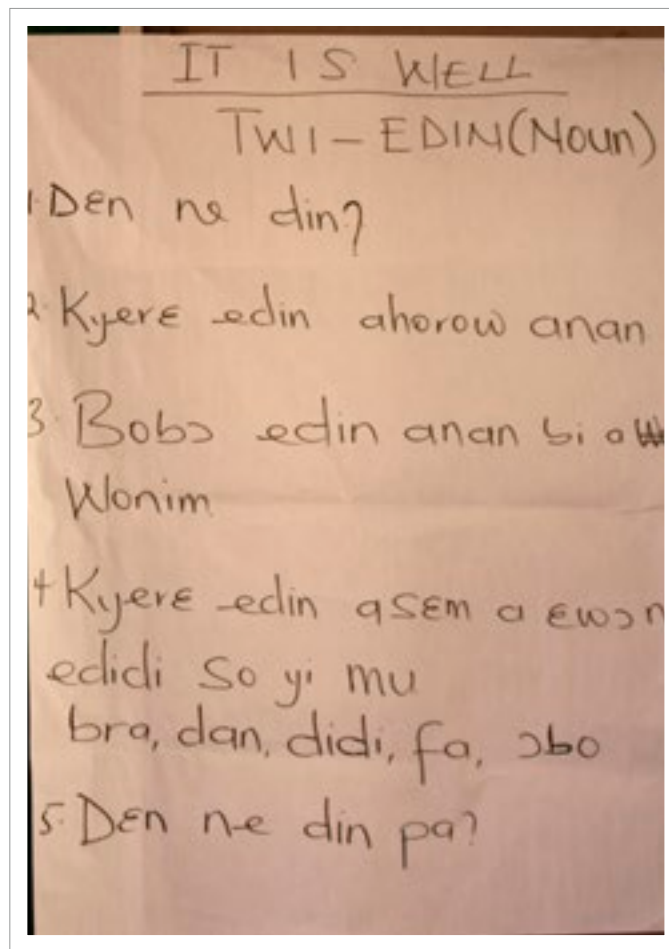 IT IS WELL
TWI - EDIN (NOUN)
1. Dɛn ne din?
2. Kyerɛ edin ahorow anan
3. Bobɔ edin anan bi a
Wonim
4 Kyerɛ edin asɛm a ɛwɔ n
edidi so yi mu
bra, dan, didi, fa, ɔbo
5. Dɛn ne din pa?